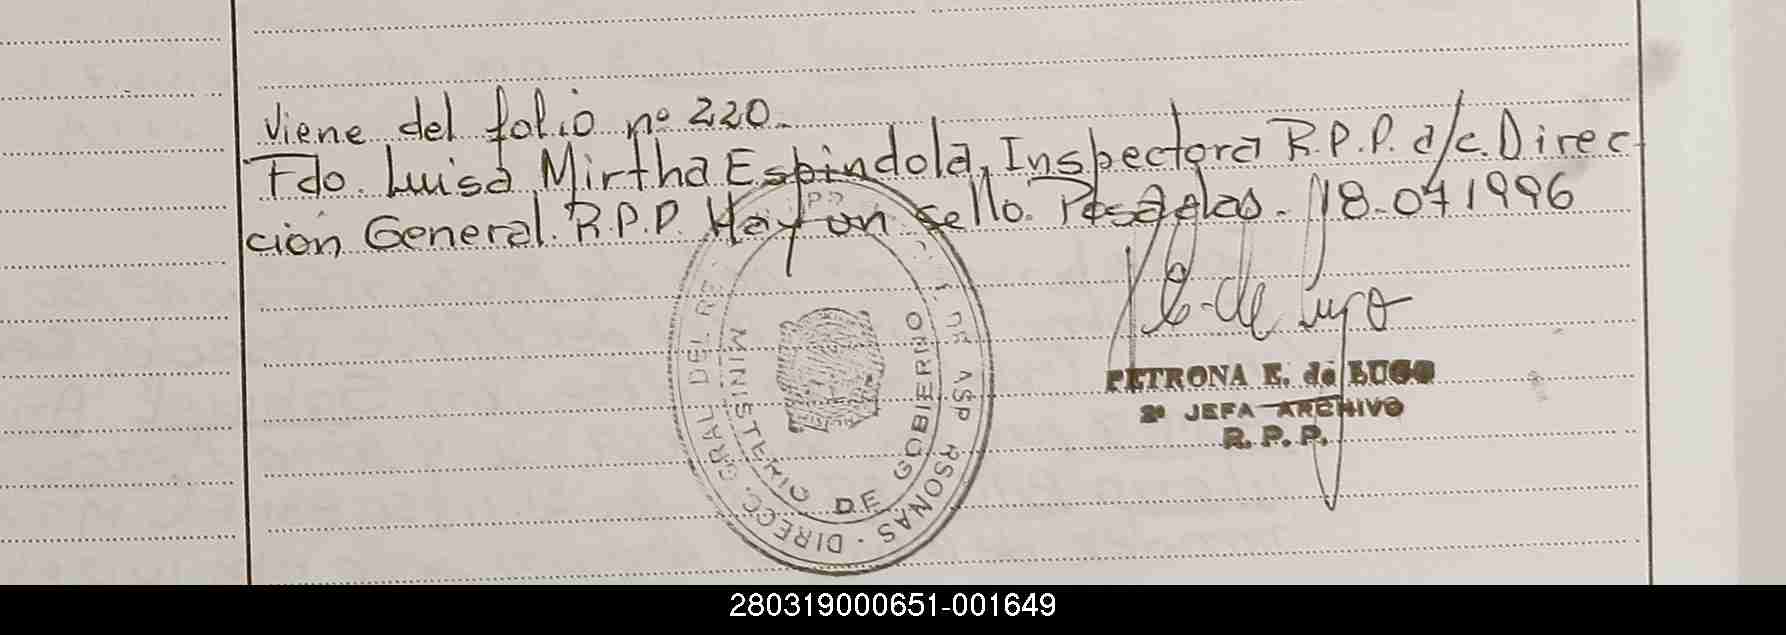 Viene del folio nº 220.
Fdo. Luisa Mirtha Espindola, Inspectora R.P.P. a/c. Direc
ción General. R.P.P. Hay un sello. Posadas. 18-04 1996
E. de Lugo
PETRONA E. de LUGO
2º JEFA ARCHIVO
R. P. P.
DIRECC. GRAL DEL
PERSONAS
MINISTERIO DE GOBIERNO
280319000651-001649